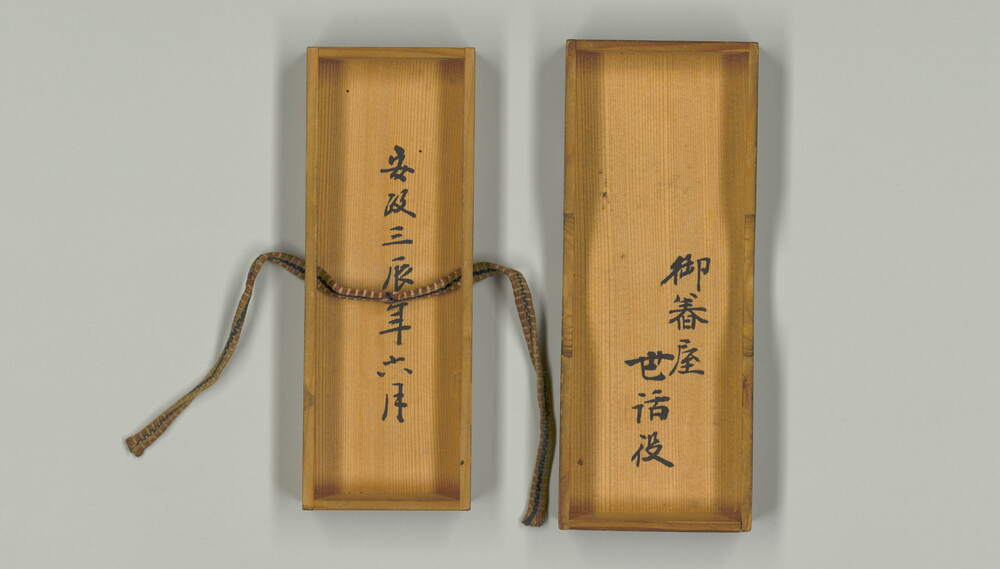 御箸屋
世話役
安政三辰年六月